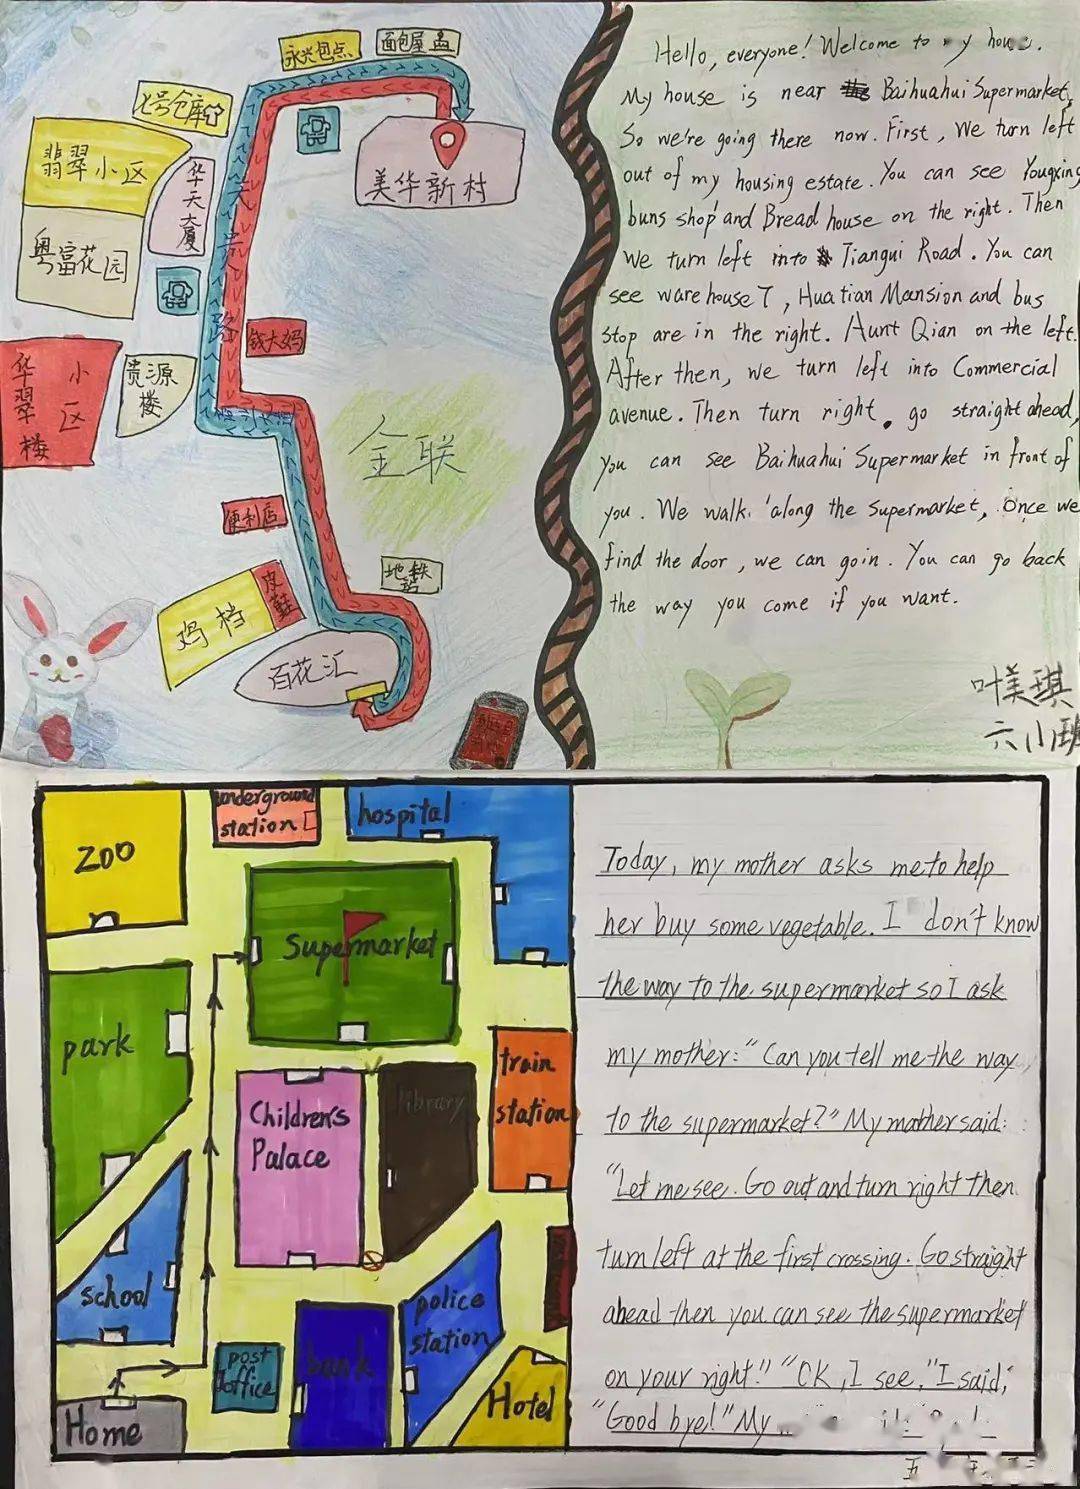 永兴包点
面包屋
七号仓库
翡翠小区
华天大厦
美华新村
粤富花园
天贵路
钱大妈
华翠楼
小区
贵源楼
金联
便利店
地铁站
鸡档
皮鞋
百花汇
Hello, everyone! Welcome to my house.
My house is near Baihuahui Supermarket,
So we're going there now. First, We turn left
out of my housing estate. You can see Yougxing
buns shop and Bread house on the right. Then
We turn left into Tiangui Road. You can
see warehouse 7, Hua tian Mansion and bus
stop are in the right. Aunt Qian on the left.
After then, we turn left into Commercial
avenue. Then turn right, go straight ahead,
you can see Baihuahui Supermarket in front of
you. We walk along the supermarket, Once we
find the door, we can go in. You can go back
the way you come if you want.
叶美琪
六小班
zoo
underground
station
hospital
supermarket
park
Children's
Palace
library
train
station
school
police
station
post
office
bank
Hotel
Home
Today, my mother asks me to help
her buy some vegetable. I don't know
the way to the supermarket so I ask
my mother: "Can you tell me the way
to the supermarket?" My mother said:
"Let me see. Go out and turn right then
turn left at the first crossing. Go straight
ahead then you can see the supermarket
on your right!" "OK, I see," I said,
"Good bye!" My
五